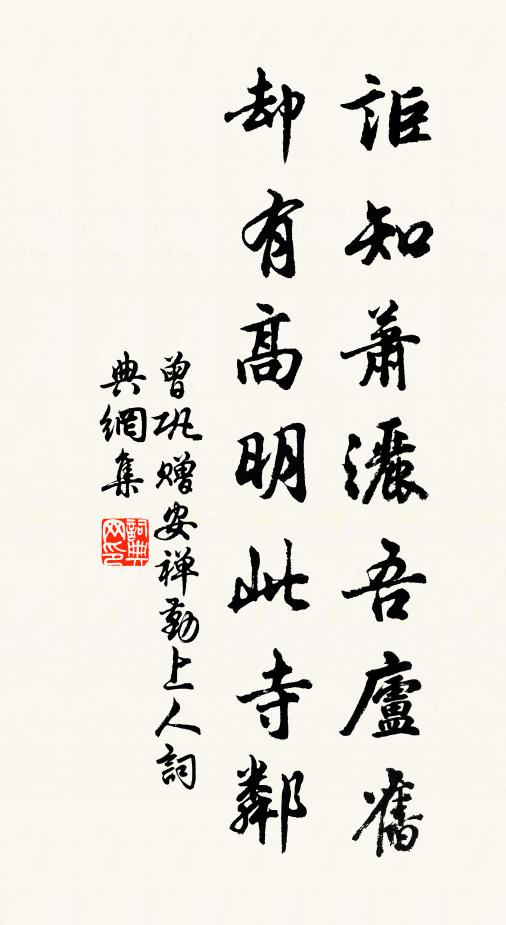 詎知蕭灑吾廬舊
却有高明此寺鄰
曾巩赠安禅勤上人詞
典網集
詞典網印